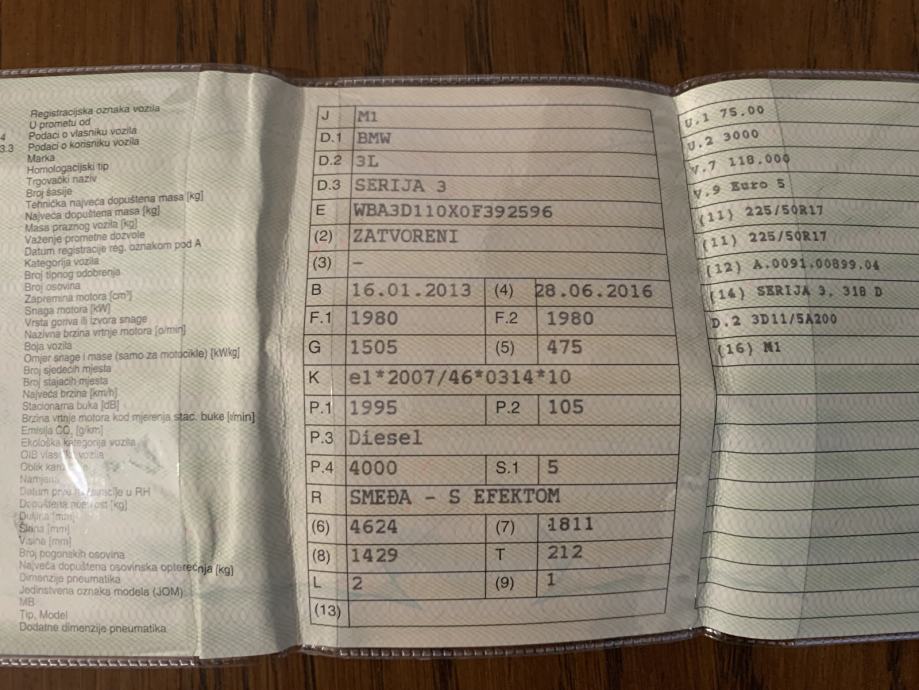 Registracijska oznaka vozila
U prometu od
4 Podaci o vlasniku vozila
3.3 Podaci o korisniku vozila
Marka
Homologacijski tip
Trgovački naziv
Broj šasije
Tehnička najveća dopuštena masa [kg]
Najveća dopuštena masa [kg]
Masa praznog vozila [kg]
Važenje prometne dozvole
Datum registracije reg. oznakom pod A
Kategorija vozila
Broj tipnog odobrenja
Broj osovina
Zapremina motora [cm³]
Snaga motora [kW]
Vrsta goriva ili izvora snage
Nazivna brzina vrtnje motora [o/min]
Boja vozila
Omjer snage i mase (samo za motocikle) [kW/kg]
Broj sjedećih mjesta
Broj stajaćih mjesta
Najveća brzina [km/h]
Stacionarna buka [dB]
Brzina vrtnje motora kod mjerenja stac. buke [1/min]
Emisija CO₂ [g/km]
Ekološka kategorija vozila
OIB vozila
Oblik
Namjena
Datum prve u RH
Dopuštena nosivost [kg]
Duljina [mm]
Širina [mm]
Visina [mm]
Broj pogonskih osovina
Najveća dopuštena osovinska opterećnja [kg]
Dimenzije pneumatika
Jedinstvena oznaka modela (JOM)
MB
Tip, Model
Dodatne dimenzije pneumatika
J M1
D.1 BMW
D.2 3L
D.3 SERIJA 3
E WBA3D110X0F392596
(2) ZATVORENI
(3) –
B 16.01.2013 (4) 28.06.2016
F.1 1980 F.2 1980
G 1505 (5) 475
K e1*2007/46*0314*10
P.1 1995 P.2 105
P.3 Diesel
P.4 4000 S.1 5
R SMEĐA - S EFEKTOM
(6) 4624 (7) 1811
(8) 1429 T 212
L 2 (9) 1
(13)
U.1 75.00
U.2 3000
V.7 118.000
V.9 Euro 5
(11) 225/50R17
(11) 225/50R17
(12) A.0091.00899.04
(14) SERIJA 3, 318 D
D.2 3D11/5A200
(16) M1